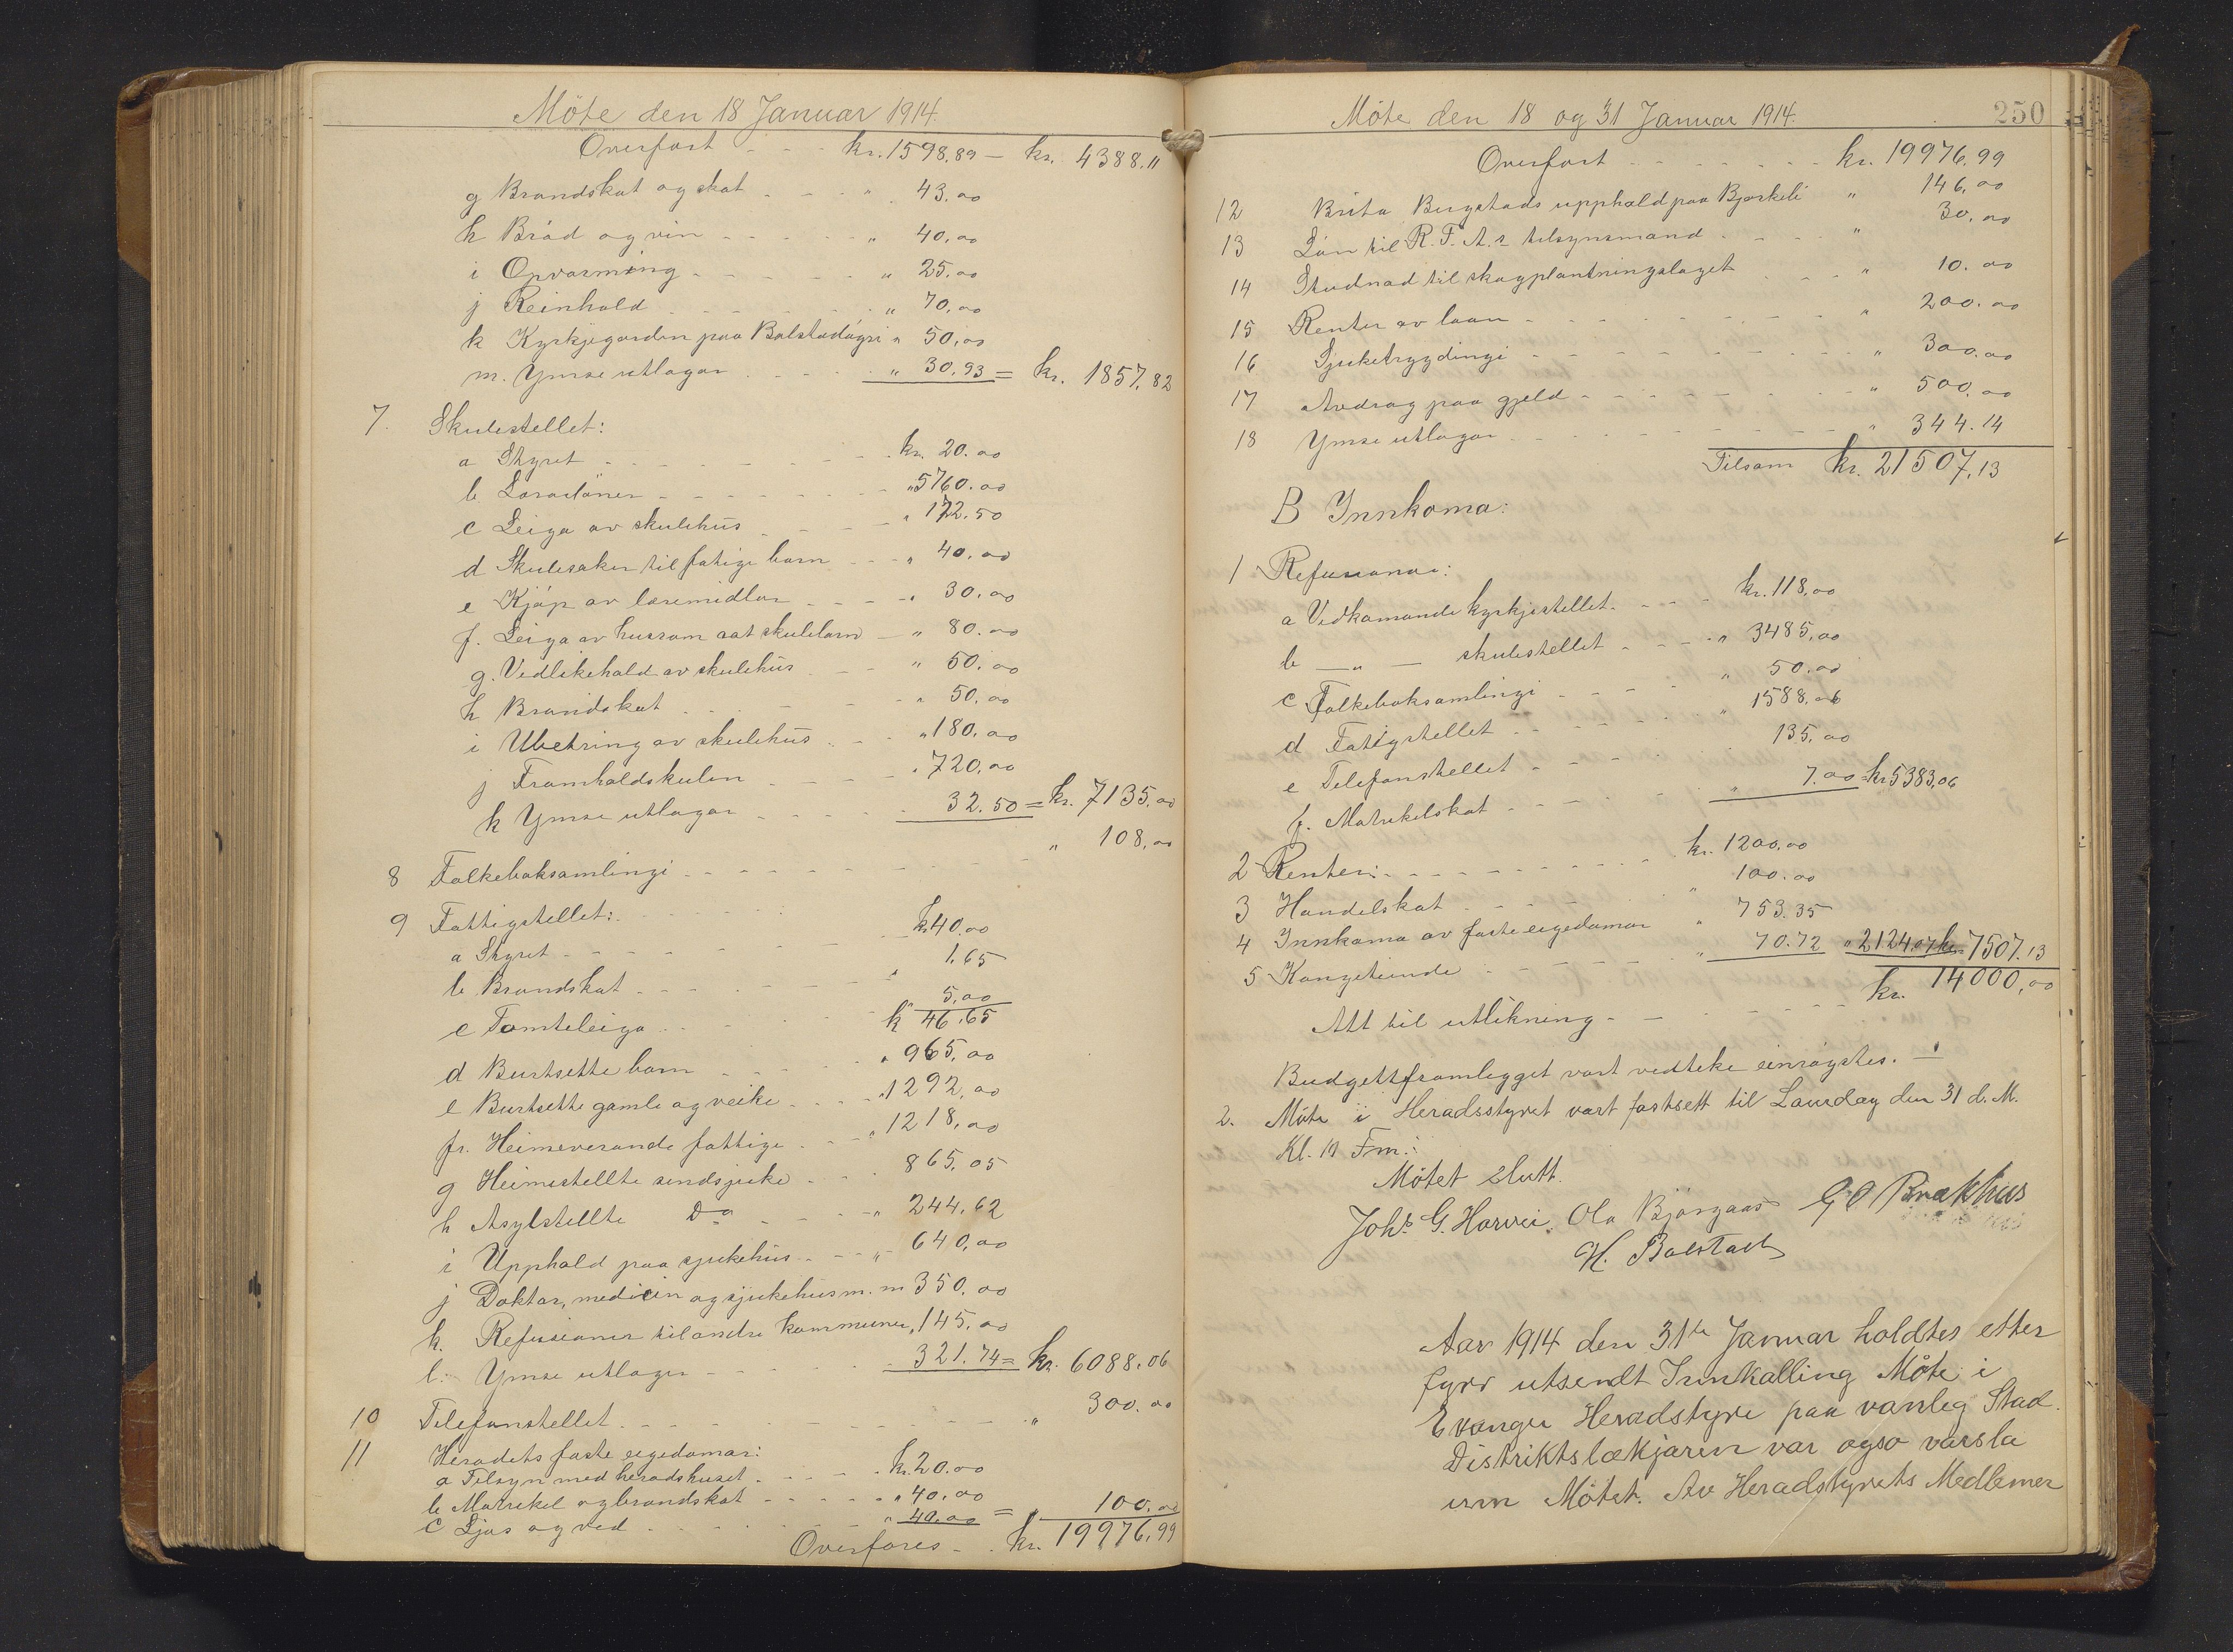 Möte den 18 Januar 1914.
Overfört - - - kr. 1598,89 - kr. 4388.11
g Brandskat og skat - - - " 43.00
h Bröd og vin - - - - " 40,00
i Opvarming - - - - - " 25.00
j Reinhold - - - - - " 70,00
k Kyrkjegarden paa Bolstadöyri " 50,00
m. Ymse utlagor - - - - " 30,93 = kr. 1857,82
7. Skulestellet:
a Styret - - - - - - - kr. 20.00
b Lærarlöner - - - - - - " 5760.00
c Leiga av skulehus - - - " 172.50
d Skulesaker til fatige born - - " 40,00
e Kjöp av læremidlar - - - " 30.00
f. Leiga av husrom aat skuleborn - " 80.00
g. Vedlikehald av skulehus - - " 50.00
h Brandskat - - - - - " 50,00
i Ubetring av skulehus - - " 180,00
j Framhaldskulen - - - - " 720,00
k Ymse utlagor - - - - - 32.50 = kr. 7135.00
8 Folkeboksamlingi - - - - - - - " 108,00
9 Fattigstellet: - - - - -
a Styret - - - - - - kr 40.00
b Brandskat - - - - - " 1.65
c Tomteleiga - - - - - " 5,00
kr 46.65
d Burtsette born - - - - " 965,00
e Burtsette gamle og veike - - - " 1292,00
fr. Heimeverande fattige - - - " 1218,00
g Heimestellte sindsjuke - - - 865,05
h Asylstellte Do - - - - " 244,62
i Upphald paa sjukehus - - - " 640,00
j Doktor, medicin og sjukehus m. m 350.00
k. Refusioner til andre kommuner " 145.00
l. Ymse utlagor - - - - - 321.74 = kr. 6088.06
10 Telefonstellet - - - - - - - " 300.00
11 Heradets faste eigedomar:
a Tilsyn med heradshuset - - - - kr. 20.00
b Matrikel og brandskat - - - - " 40,00
c Ljos og ved - - - - - - " 40.00 = " 100,00
Overföres - . kr. 19976,99
Möte den 18 og 31 Januar 1914. 250
Overfört - - - - - - - kr. 19976,99
12 Brita Bergstads upphald paa Bjørkeli " 146,00
13 Lön til R. F. A.s tilsynsmand - - - " 30,00
14 Studnad til skogplantningslaget - - - " 10.00
15 Renter av laan - - - - - - - " 200.00
16 Sjuketrygdingi - - - - - - - " 300.00
17 Avdrag paa gjeld - - - - - - - " 500,00
18 Ymse utlagor - - - - - - - " 344.14
Tilsam kr. 21507,13
B Innkoma:
1 Refusionar:
a Vedkomande kyrkjestellet. - - - kr. 118,00
b — " — skulestellet - - - " 3485,00
c Folkeboksamlingi - - - - " 50.00
d Fatigstellet - - - - - " 1588,06
e Telefonstellet - - - - - 135,00
f. Matrikelskat - - - - - " 7.00 = kr 5383,06
2 Renter: - - - - - - - kr. 1200,00
3 Handelskat - - - - - " 100.00
4 Innkoma av faste eigedomar " 753.35
5 Kongetiende - - - - - - " 70.72 " 2124.07 kr 7507.13
Att til utlikning - - - - - - kr. 14000,00
Budgettframlegget vart vedteke einröystes. —
2. Möte i Heradsstyret vart fastsett til Laurdag den 31 d. M.
Kl. 10 Fm.:
Mötet slutt.
Johs. G. Horvei. Ola Bjørgaas G O Brækhus
H. Bolstad
Aar 1914 den 31te Januar holdtes etter
fyrr utsendt Innkalling Möte i
Evanger Heradstyre paa vanleg Stad.
Distriktslækjaren var ogso varsla
um Mötet. Av Heradstyrets Medlemer